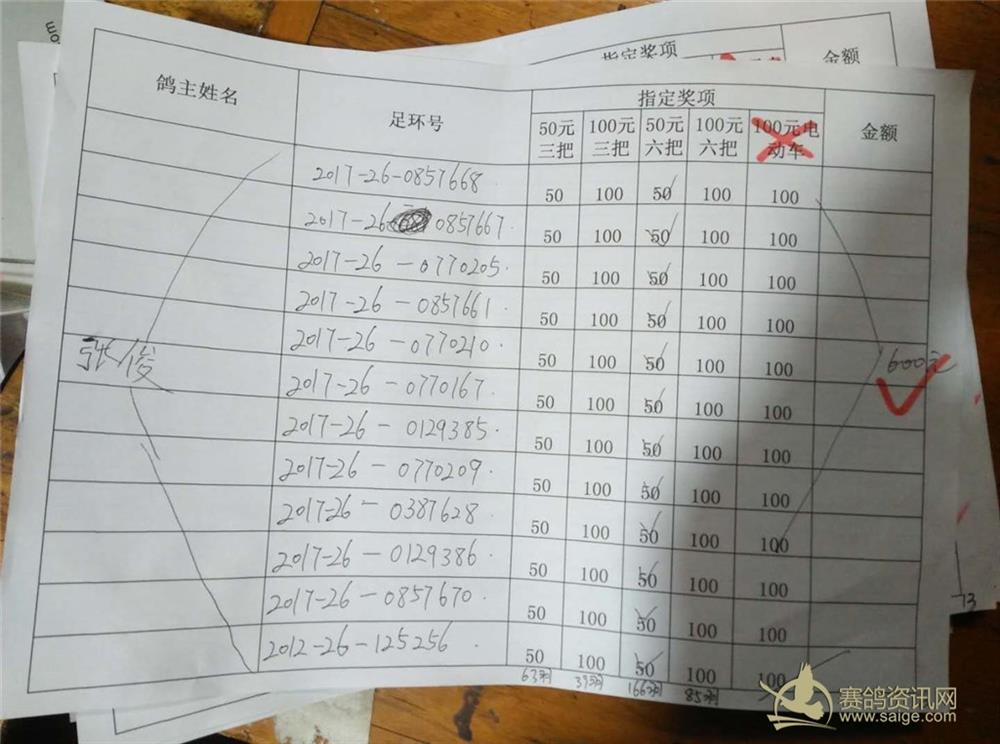 指定奖项
金额
鸽主姓名
足环号
指定奖项
金额
50元三把
100元三把
50元六把
100元六把
100元电动车
2017-26-0857668 50 100 50 100 100
2017-26 0857667 50 100 50 100 100
2017-26-0770205 50 100 50 100 100
2017-26-0857661 50 100 50 100 100
2017-26-0770210 50 100 50 100 100
张俊
600元
2017-26-0770167 50 100 50 100 100
2017-26-0129385 50 100 50 100 100
2017-26-0770209 50 100 50 100 100
2017-26-0387628 50 100 50 100 100
2017-26-0129386 50 100 50 100 100
2017-26-0857670 50 100 50 100 100
2012-26-125256 50 100 50 100 100
63羽 39羽 166羽 85羽
73
赛鸽资讯网
www.saige.com